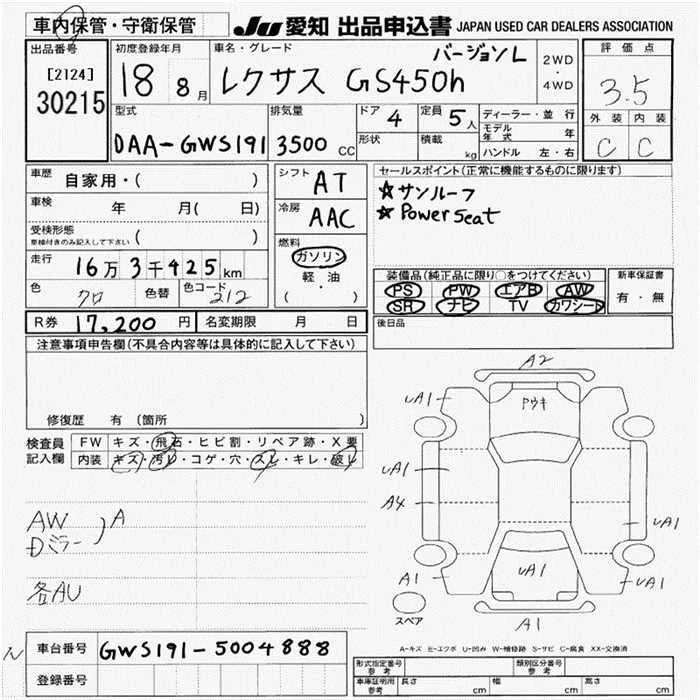 車内保管・守衛保管
JU 愛知 出品申込書 JAPAN USED CAR DEALERS ASSOCIATION
出品番号
[2124]
30215
初度登録年月
18 8月
車名・グレード
バージョンL
レクサス GS450h
2WD
・
4WD
評価点
3.5
外装 内装
C C
型式
DAA-GWS191
排気量
3500 CC
ドア 4
定員 5人
形状
積載 kg
ディーラー・並行
モデル年式 年
ハンドル 左・右
車歴 自家用・( )
車検 年 月( 日)
受検形態
車検付きのみ記入して下さい ( )
走行 16万3千425km
色 クロ 色替 色コード 212
シフト AT
冷房 AAC
燃料
ガソリン
軽・油
( )
セールスポイント(正常に機能するものに限ります)
☆サンルーフ
☆Power seat
装備品(純正品に限り○をつけてください)
PS PW エアB AW
SR ナビ TV カワシート
新車保証書
有・無
後日品
R券 17,200円 名変期限 月 日
注意事項申告欄(不具合内容等は具体的に記入して下さい)
修復歴 有 (箇所 )
検査員
記入欄
FW キズ・飛石・ヒビ割・リペア跡・X要
内装 キズ・汚レ・コゲ・穴・スレ・キレ・破レ
AW
Dミラー
A
各AU
A2
UA1
アウキ
UA1
A4
UA1
A1
UA1
UA1
A1
スペア
A-キズ E-エクボ U-凹み W-補修跡 S-サビ C-腐食 XX-交換済
車台番号 GWS191-5004888
登録番号
形式指定番号
参考
類別区分番号
参考
車庫証明用
参考
長さ cm
幅 cm
高さ cm